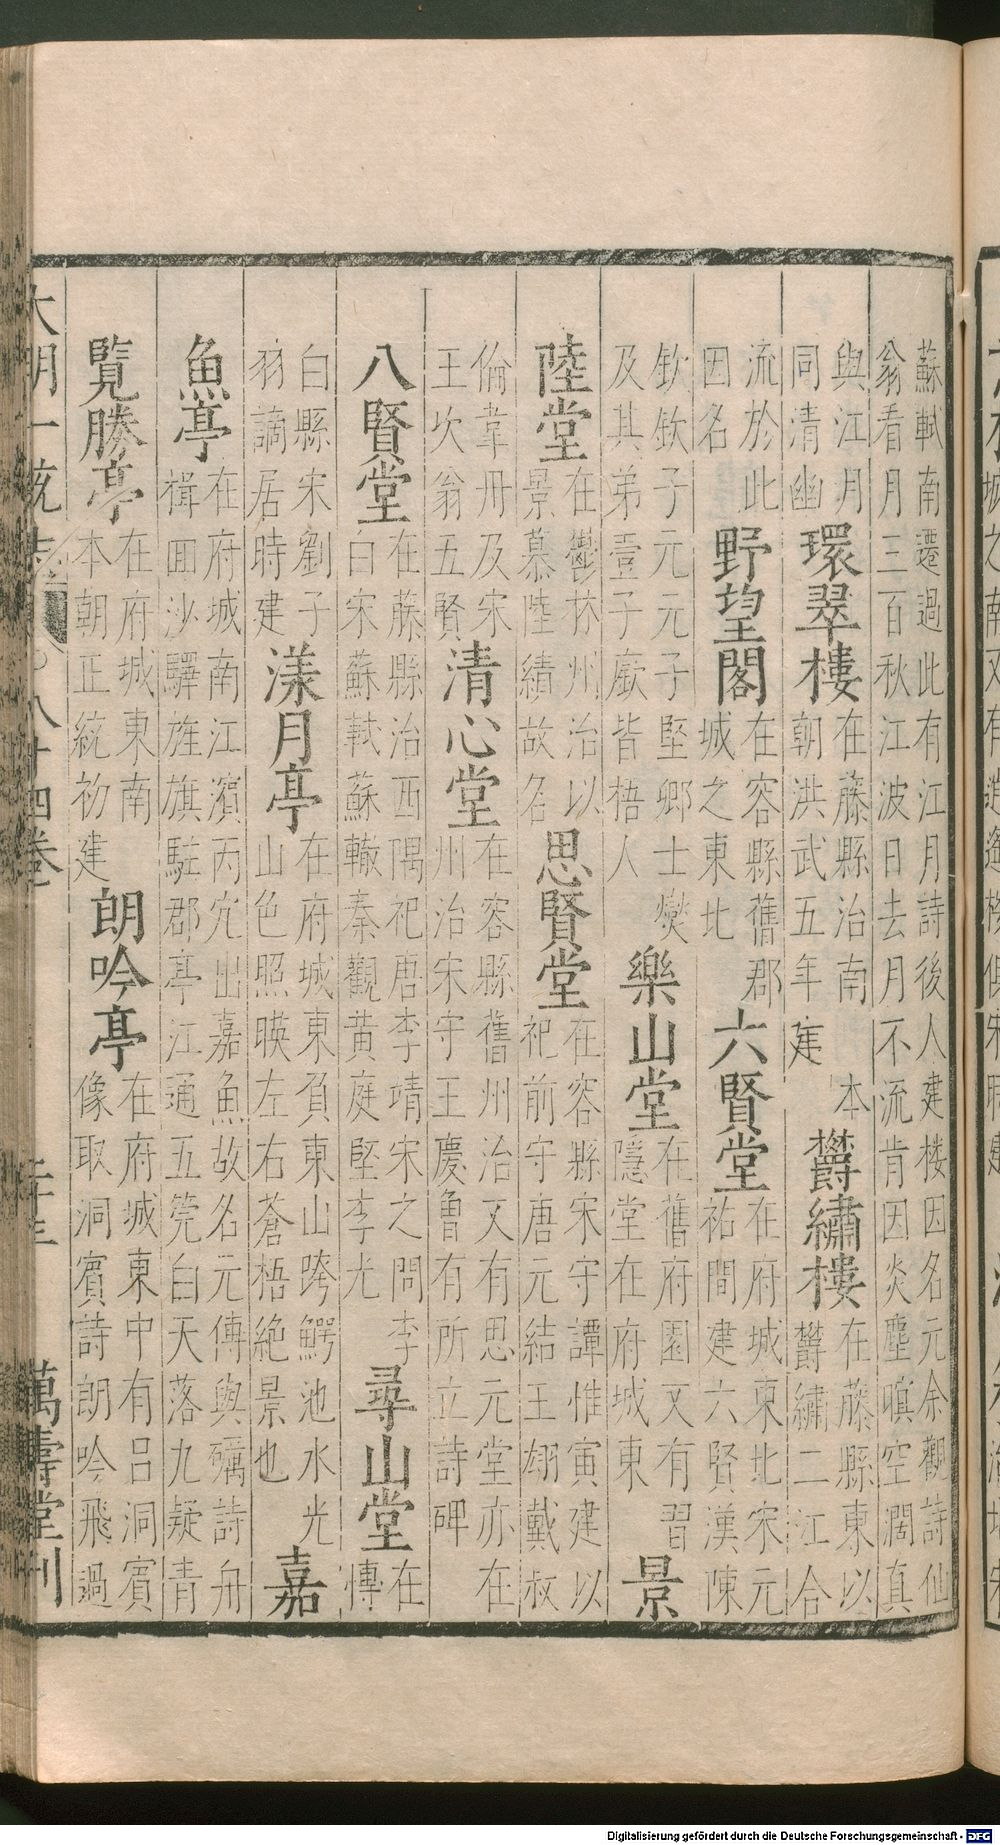 蘇軾南遷過此有江月詩後人建樓因名元余觀詩仙
翁看月三百秋江波日去月不流肯因炎塵嗔空濶真
與江月
同清幽
環翠樓
在藤縣治南 本
朝洪武五年建
欝繡樓
在藤縣東以
欝繡二江合
流於此
因名
野望閣
在容縣舊郡
城之東北
六賢堂
在府城東北宋元
祐間建六賢漢陳
欽欽子元元子堅卿士燮
及其弟壹子廞皆梧人
樂山堂
在舊府園又有習
隱堂在府城東
景
陸堂
在鬱林州治以
景慕陸績故名
思賢堂
在容縣宋守譚惟寅建以
祀前守唐元結王翃戴叔
倫韋丹及宋
王次翁五賢
清心堂
在容縣舊州治又有思元堂亦在
州治宋守王慶魯有所立詩碑
八賢堂
在藤縣治西隅祀唐李靖宋之問李
白宋蘇軾蘇轍秦觀黄庭堅李光
尋山堂
在
博
白縣宋劉子
羽謫居時建
漾月亭
在府城東負東山跨鰐池水光
山色照暎左右蒼梧絶景也
嘉
魚亭
在府城南江濱丙穴出嘉魚故名元傅與礪詩舟
楫回沙驛旌旗駐郡亭江通五筦白天落九疑青
覽勝亭
在府城東南
本朝正統初建
朗吟亭
在府城東中有吕洞賓
像取洞賓詩朗吟飛過
大明一統志
八十四卷
二十三
萬壽堂刊
Digitalisierung gefördert durch die Deutsche Forschungsgemeinschaft - DFG